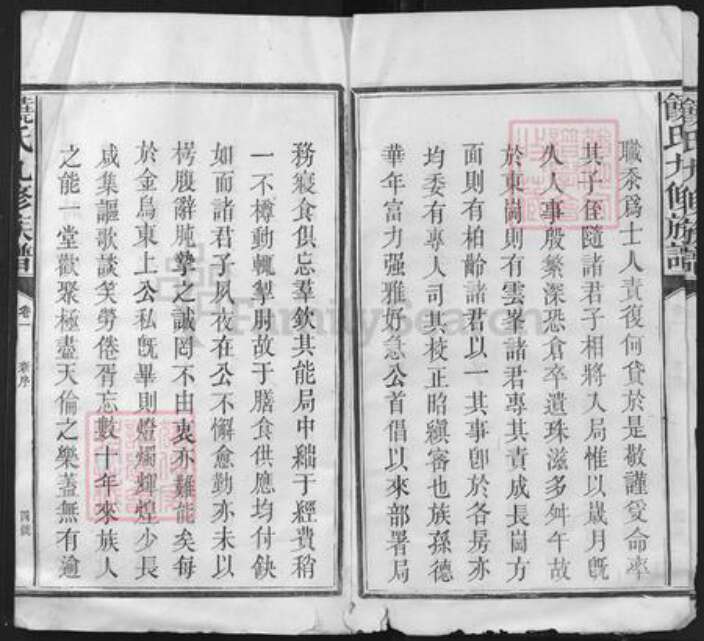 饒氏九修族譜
職忝爲士人責復何貸於是敬謹受命率
其子侄隨諸君子相將入局惟以歲月旣
久人事殷繁深恐倉卒遺珠滋多舛午故
於東崗則有雲峯諸君專其責成長崗方
面則有柏齡諸君以一其事卽於各房亦
均委有專人司其校正昭縝審也族孫德
華年富力强雅好急公首倡以來部署局
務寢食俱忘羣欽其能局中絀于經費稍
一不樽動輒掣肘故于膳食供應均付缺
如而諸君子夙夜在公不懈愈勤亦未以
枵腹辭肫摯之誠罔不由衷亦難能矣每
於金烏東上公私旣畢則燈燭輝煌少長
咸集謳歌談笑勞倦胥忘數十年來族人
之能一堂歡聚極盡天倫之樂蓋無有逾
饒氏九修族譜
卷一
序
FamilySearch